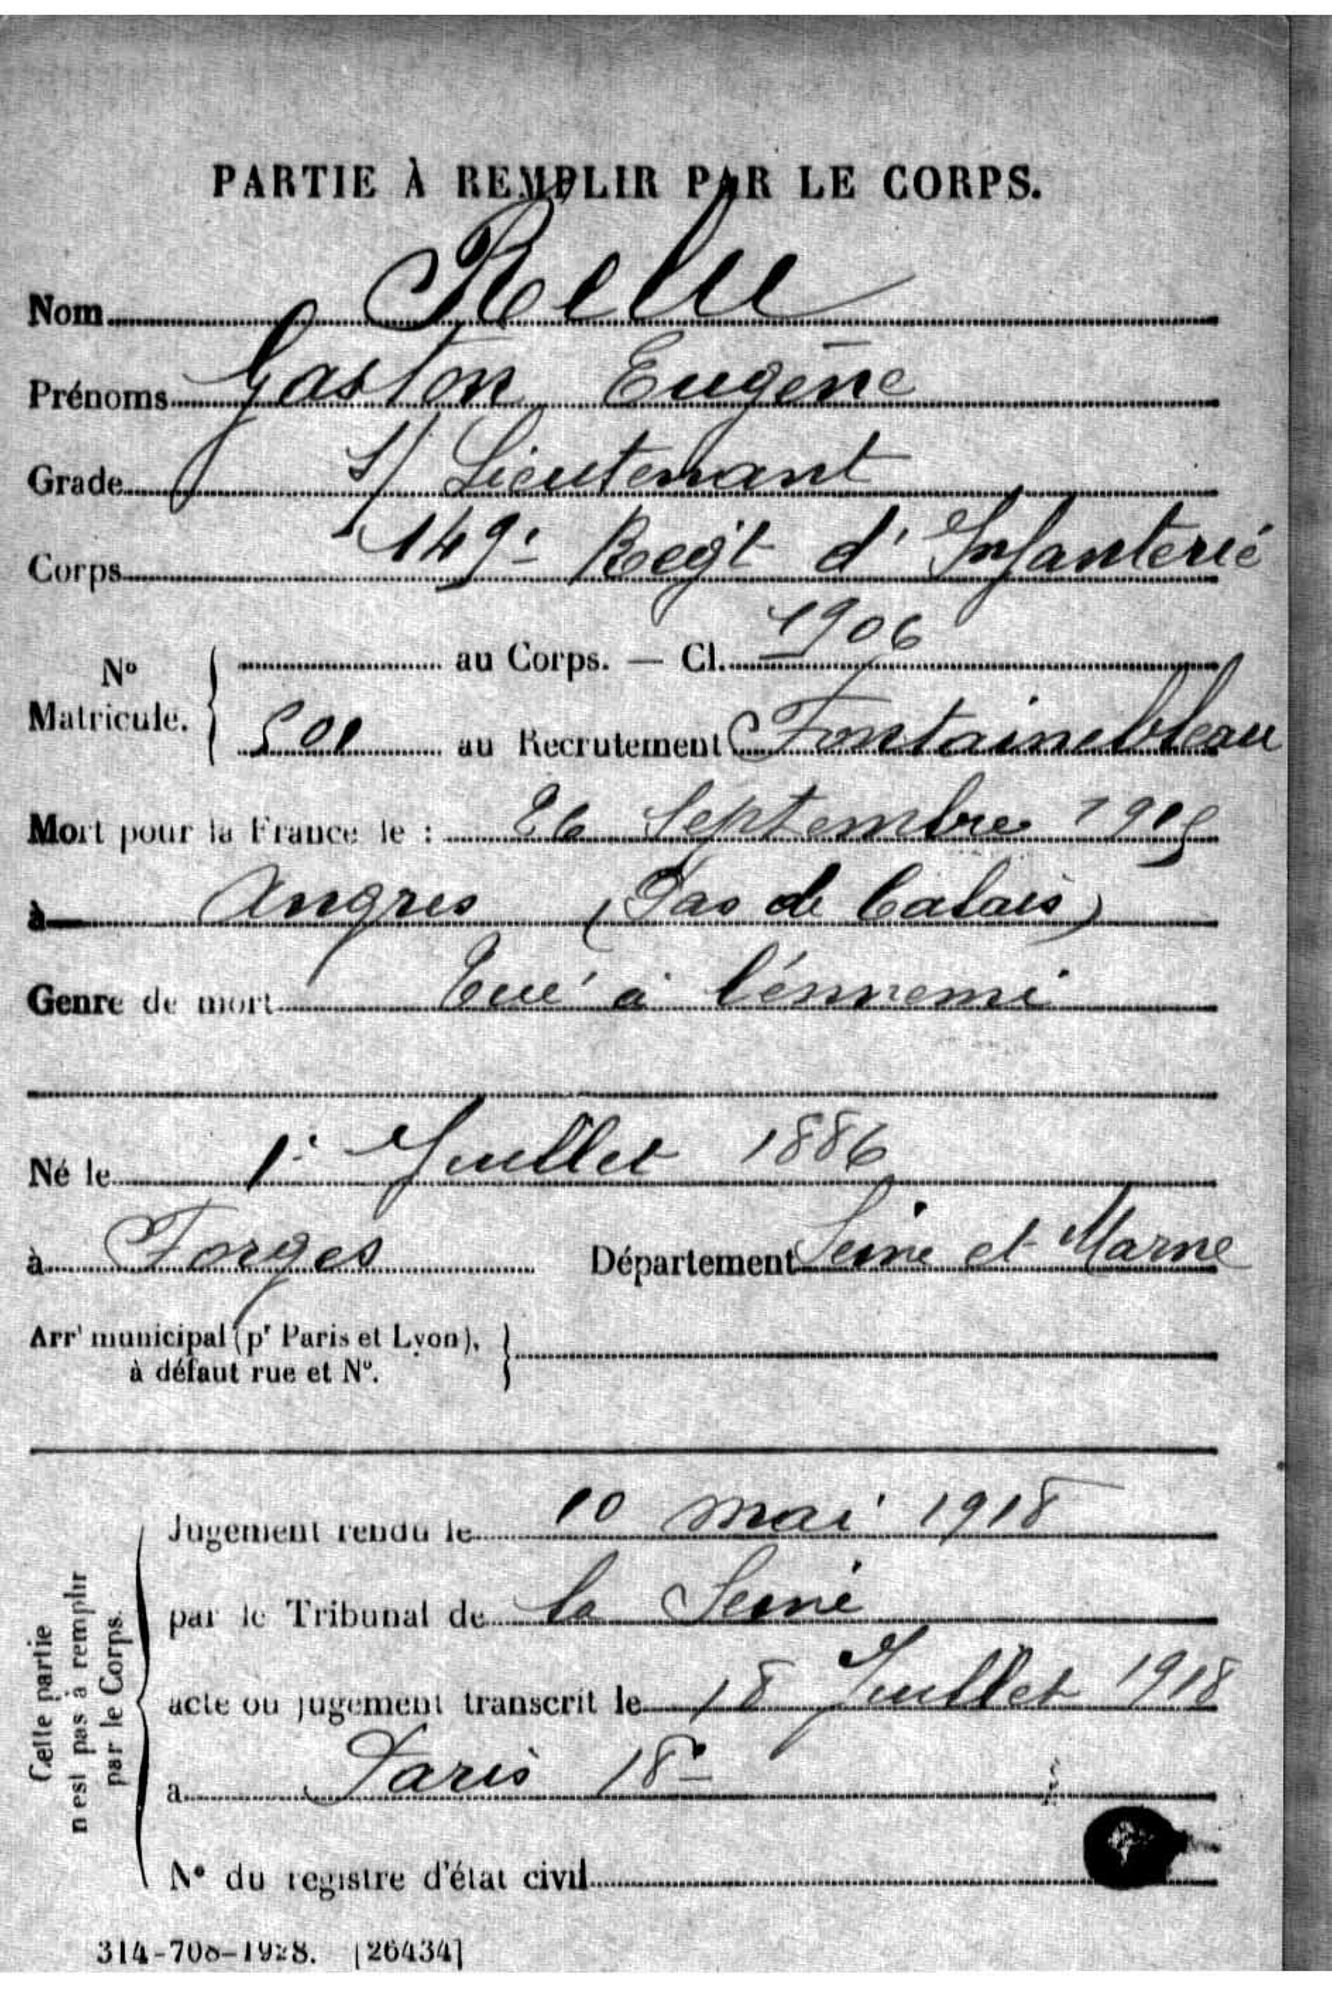 PARTIE À REMPLIR PAR LE CORPS.
Nom Relu
Prénoms Gaston Eugène
Grade S/ Lieutenant
Corps 149e Regt d'Infanterie
No Matricule. { au Corps. — Cl. 1906
501 au Recrutement Fontainebleau
Mort pour la France le : 26 Septembre 1915
à Angres (Pas de Calais)
Genre de mort Tué à l'ennemi
Né le 1er Juillet 1886
à Forges Département Seine et Marne
Arrt municipal (pr Paris et Lyon),
à défaut rue et No. }
Cette partie
n'est pas à remplir
par le Corps.
Jugement rendu le 10 mai 1918
par le Tribunal de la Seine
acte ou jugement transcrit le 18 Juillet 1918
à Paris 18e
No du registre d'état civil
314-708-1928. [26434]